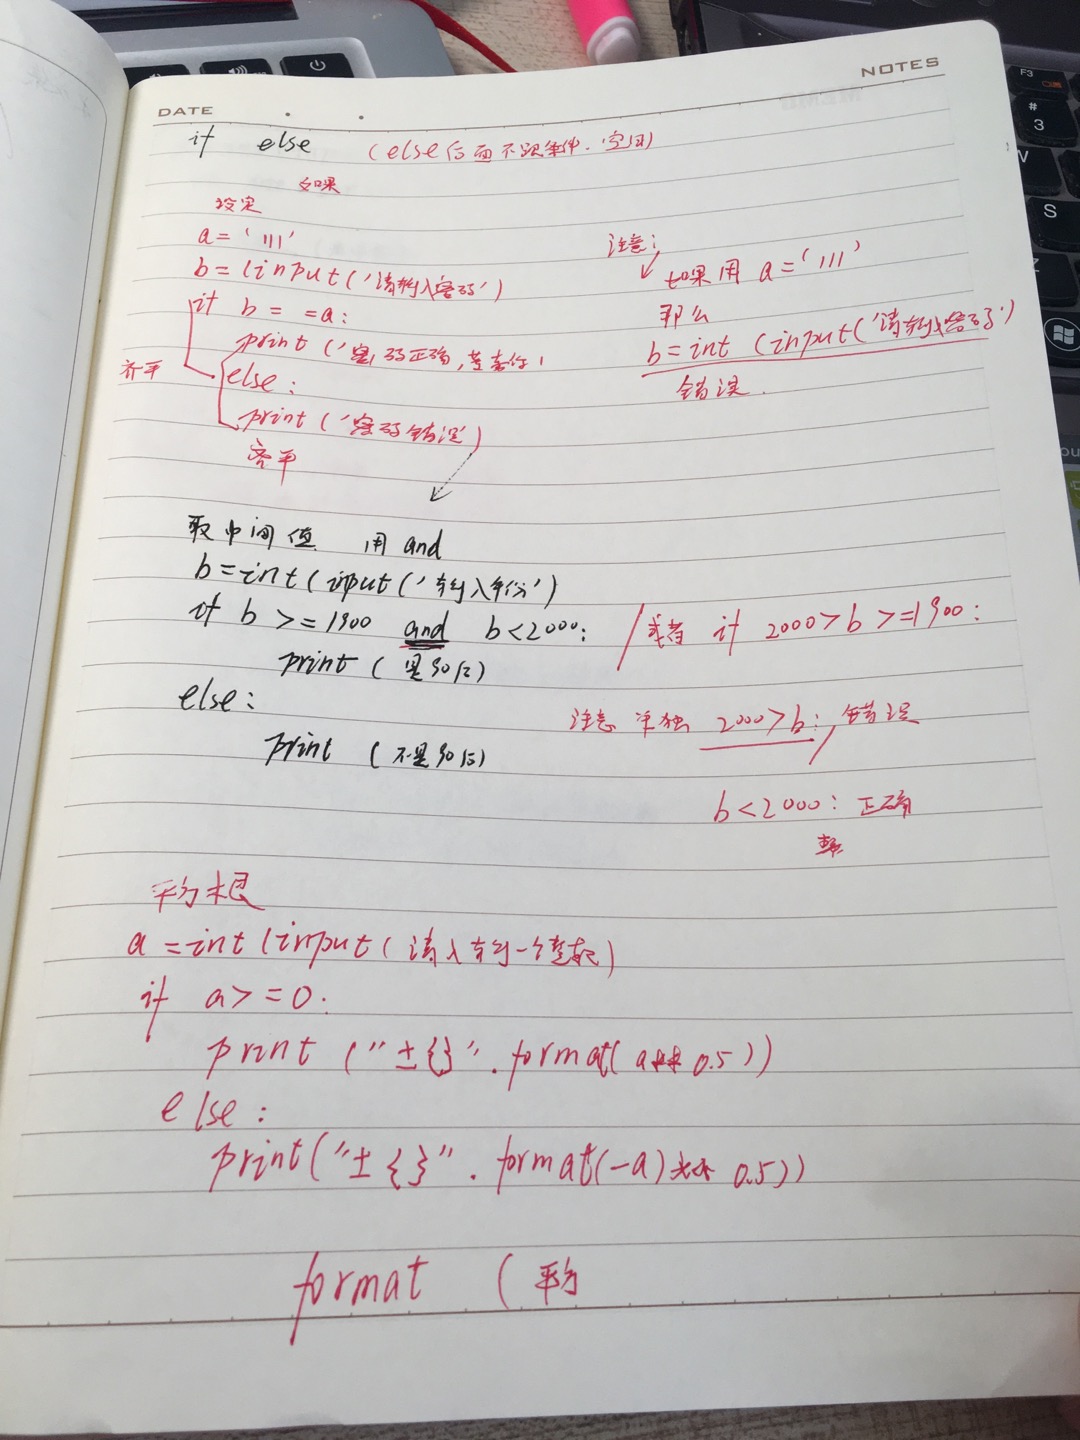 DATE
NOTES
if else (else后面不跟条件.空闲)
如果
设定
a='111'
b=(input('请输入密码')
if b==a:
print('密码正确,
else:
齐平
print('密码错误)
齐平
注意:
如果用 a='111'
那么
b=int (input('请输入密码')
错误.
取中间值 用 and
b=int(input('输入年份')
if b >=1900 and b<2000: /或者 if 2000>b>=1900:
print (是90后)
else:
注意 单独 2000>b: 错误
print (不是90后)
b<2000: 正确
平方根
a=int(input(请入输一个整数)
if a>=0:
print ("±{}".format(a**0.5))
else:
print("±{}".format(-a)**0.5))
format (平方
F3
#
3
W
S
Z